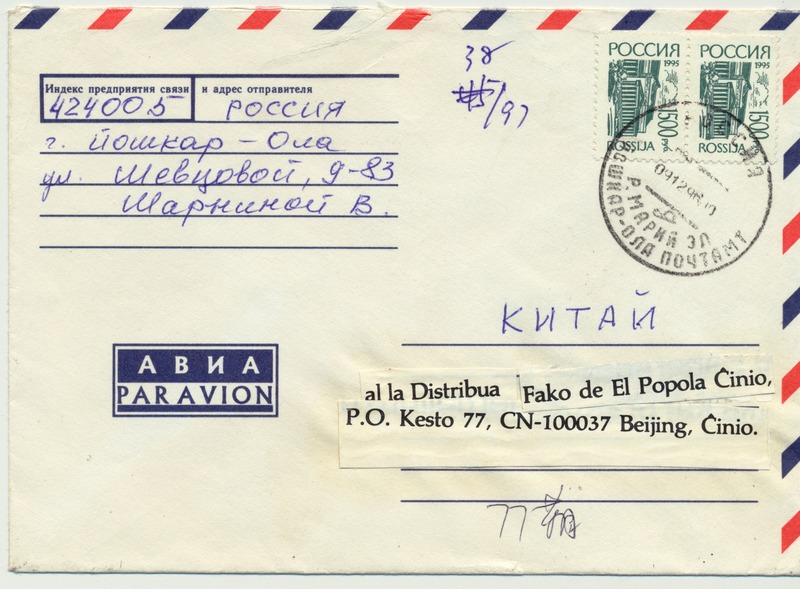 38
/97
РОССИЯ
1995
1500
руб.
ROSSIJA
РОССИЯ
1995
1500
ROSSIJA
091296
Р.МАРИЙ ЭЛ
ЙОШКАР-ОЛА ПОЧТАМТ
Индекс предприятия связи и адрес отправителя
424005 РОССИЯ
г. Йошкар-Ола
ул. Шевцовой, 9-83
Шарниной В.
КИТАЙ
АВИА
PAR AVION
al la Distribua Fako de El Popola Ĉinio,
P.O. Kesto 77, CN-100037 Beijing, Ĉinio.
77